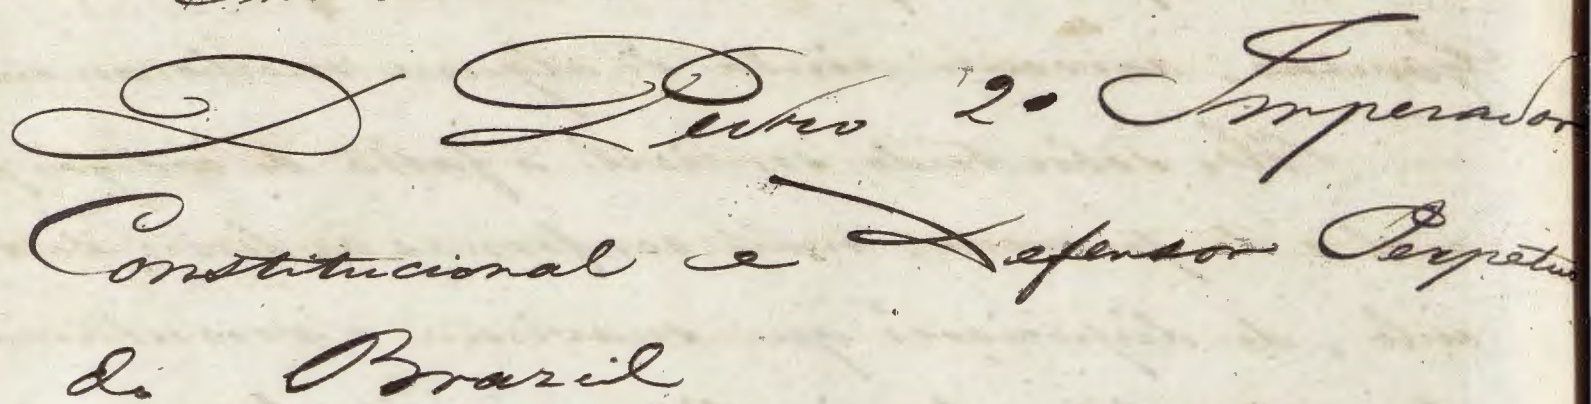 D Pedro 2º Imperador
Constitucional e Defensor Perpétuo
do Brazil